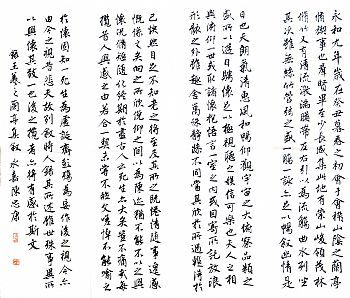 永和九年歲在癸丑暮春之初會于會稽山陰之蘭亭
脩禊事也群賢畢至少長咸集此地有崇山峻領茂林
脩竹又有清流激湍暎帶左右引以為流觴曲水列坐
其次雖無絲竹管弦之盛一觴一詠亦足以暢敘幽情是
日也天朗氣清惠風和暢仰觀宇宙之大俯察品類之
盛所以遊目騁懷足以極視聽之娛信可樂也夫人之相
與俯仰一世或取諸懷抱悟言一室之內或因寄所託放浪
形骸之外雖趣舍萬殊靜躁不同當其欣於所遇暫得於
己快然自足不知老之將至及其所之既惓情隨事遷感
慨係之矣向之所欣俛仰之間以為陳迹猶不能不以之興
懷況脩短隨化終期於盡古人云死生亦大矣豈不痛哉每
攬昔人興感之由若合一契未嘗不臨文嗟悼不能喻之
於懷固知一死生為虛誕齊彭殤為妄作後之視今亦
由今之視昔悲夫故列敘時人錄其所述雖世殊事異所
以興懷其致一也後之攬者亦將有感於斯文
錄王羲之蘭亭集敘 永嘉陳忠康